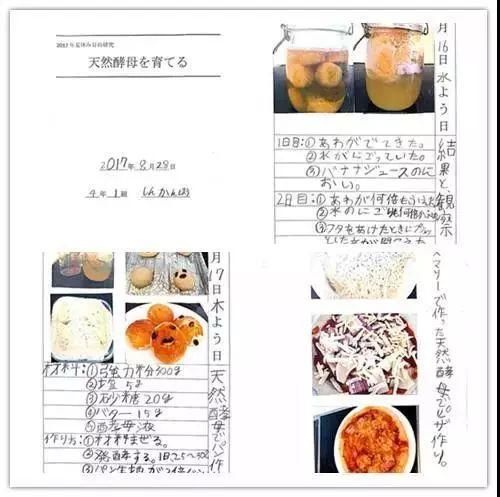 2017年夏休み自由研究
天然酵母を育てる
2017年8月28日
4年1組
月16日水よう日
結果と観察
1日目:①あわがでてきた。
②水がにごっていた。
③バナナジュースのに
おい。
2日目:①あわが何倍も
②水のにごり
③フタをあけたときに
月17日木よう日
天然酵母でパン作
材料:①強力粉300g
②塩 5g
③砂糖 20g
④バター 15g
⑤酵母液
作り方:①材料まぜる。
②発酵する。1日25~30
③パン生地が2倍
マリーで作った天然酵母でピザ作り。